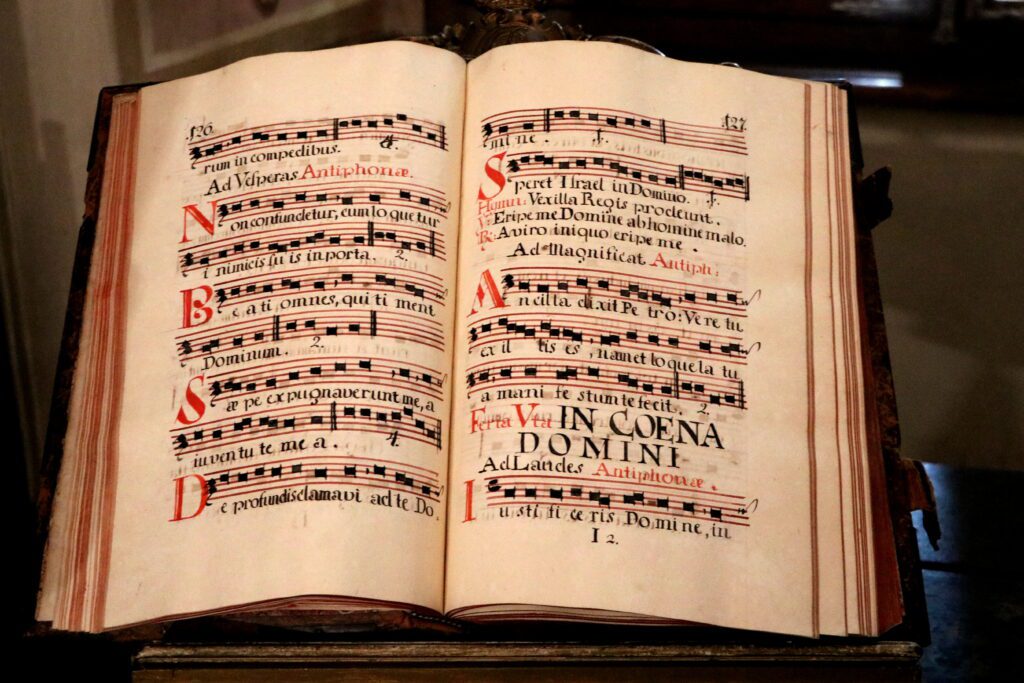 126.
rum in compedibus. 4.
Ad Vesperas Antiphonæ.
Non confundetur, cum lo que tur
i nimicis su is in porta. 2.
Be a ti omnes, qui ti ment
Dominum. 2.
Sæ pe ex pugnaverunt me, a
iu ven tu te me a. 4.
De profundis clamavi ad te Do.
127.
mi ne. 1.
Speret Israel in Domino. 1.
Hymn: Vexilla Regis prodeunt.
V: Eripe me Domine ab homine malo.
Re: A viro iniquo eripe me.
Ad Magnificat Antiph:
An cil la di xit Pe tro: Ve re tu
ex il lis es, nam et lo que la tu
a mani fe stum te fecit. 2.
Feria Vta IN COENA
DOMINI
Ad Laudes Antiphonæ.
Iu sti fi ce ris Do mi ne, in
I 2.